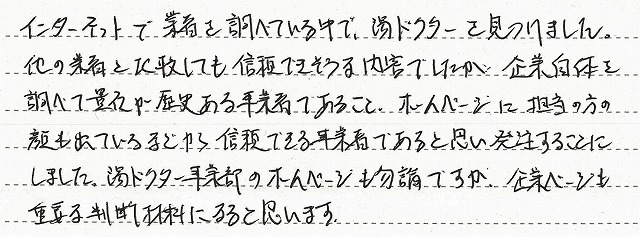 インターネットで業者を調べている中で、湯ドクターを見つけました。
他の業者と比較しても信頼できそうな内容でしたが、企業自体を
調べて量及や歴史ある事業者であること、ホームページに担当の方の
顔も出ているなどから信頼できる事業者であると思い発注することに
しました。湯ドクター事業部のホームページも勿論ですが、企業ページも
重要な判断材料になると思います。